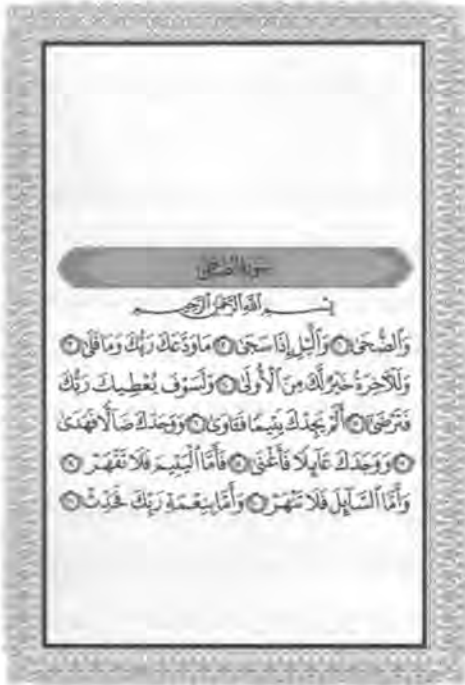 سورة الضحى
بِسْمِ اللَّهِ الرَّحْمَٰنِ الرَّحِيمِ
وَالضُّحَىٰ ۝ وَالَّيْلِ إِذَا سَجَىٰ ۝ مَا وَدَّعَكَ رَبُّكَ وَمَا قَلَىٰ ۝
وَلَلْآخِرَةُ خَيْرٌ لَّكَ مِنَ الْأُولَىٰ ۝ وَلَسَوْفَ يُعْطِيكَ رَبُّكَ
فَتَرْضَىٰ ۝ أَلَمْ يَجِدْكَ يَتِيمًا فَآوَىٰ ۝ وَوَجَدَكَ ضَالًّا فَهَدَىٰ
۝ وَوَجَدَكَ عَائِلًا فَأَغْنَىٰ ۝ فَأَمَّا الْيَتِيمَ فَلَا تَقْهَرْ ۝
وَأَمَّا السَّائِلَ فَلَا تَنْهَرْ ۝ وَأَمَّا بِنِعْمَةِ رَبِّكَ فَحَدِّثْ ۝